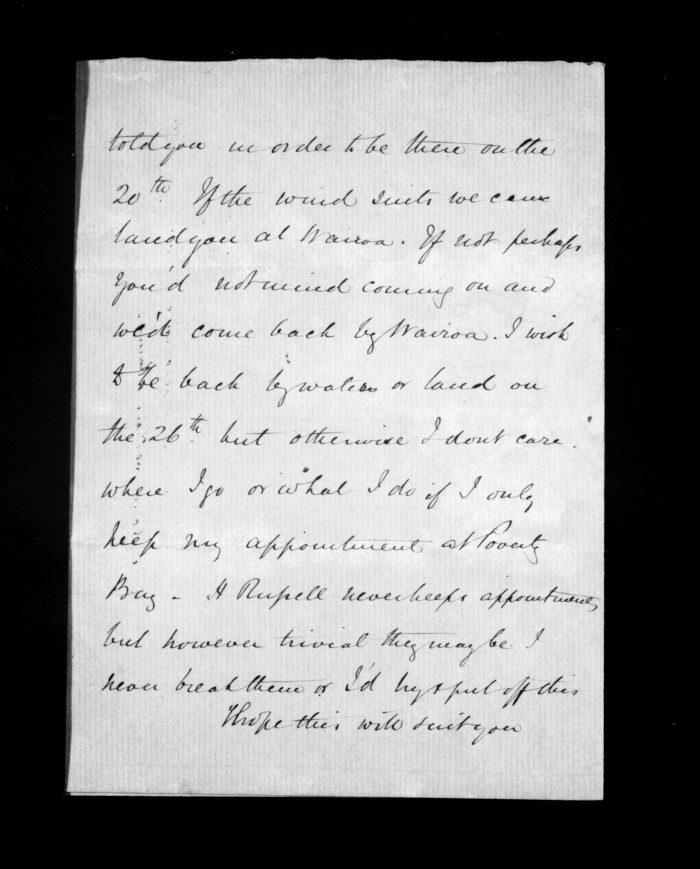 told you in order to be there on the
20th. If the wind suits we can
land you at Wairoa. If not perhaps
you'd not mind coming on and
we'd come back by Wairoa. I wish
to be back by water or land on
the 26th but otherwise I dont care
where I go or what I do if I only
keep my appointment at Poverty
Bay - H Russell never keeps appointments
but however trivial they may be I
never break them or I'd try & put off this
I hope this will suit you